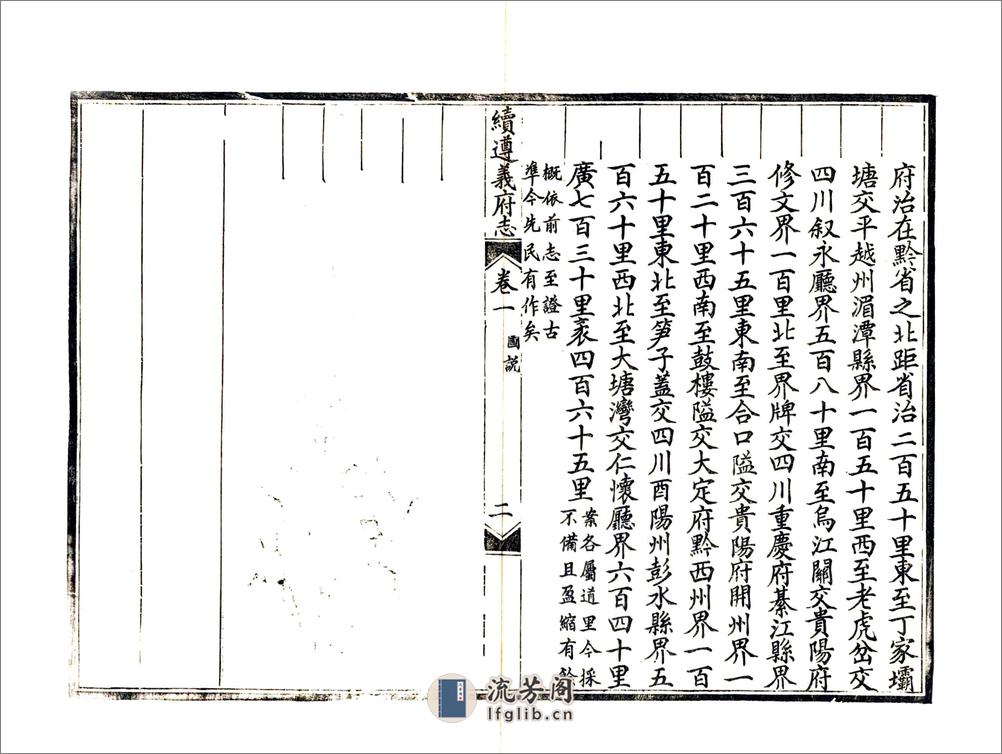 府治在黔省之北距省治二百五十里東至丁家壩
塘交平越州湄潭縣界一百五十里西至老虎岔交
四川叙永廳界五百八十里南至烏江關交貴陽府
修文界一百里北至界牌交四川重慶府綦江縣界
三百六十五里東南至合口隘交貴陽府開州界一
百二十里西南至鼓樓隘交大定府黔西州界一百
五十里東北至笋子蓋交四川酉陽州彭水縣界五
百六十里西北至大塘灣交仁懷廳界六百四十里
廣七百三十里袤四百六十五里
案各屬道里今採
不備且盈縮有餘
概依前志至證古
準今先民有作矣
續遵義府志
卷一
圖說
二
流芳阁
lfglib.cn